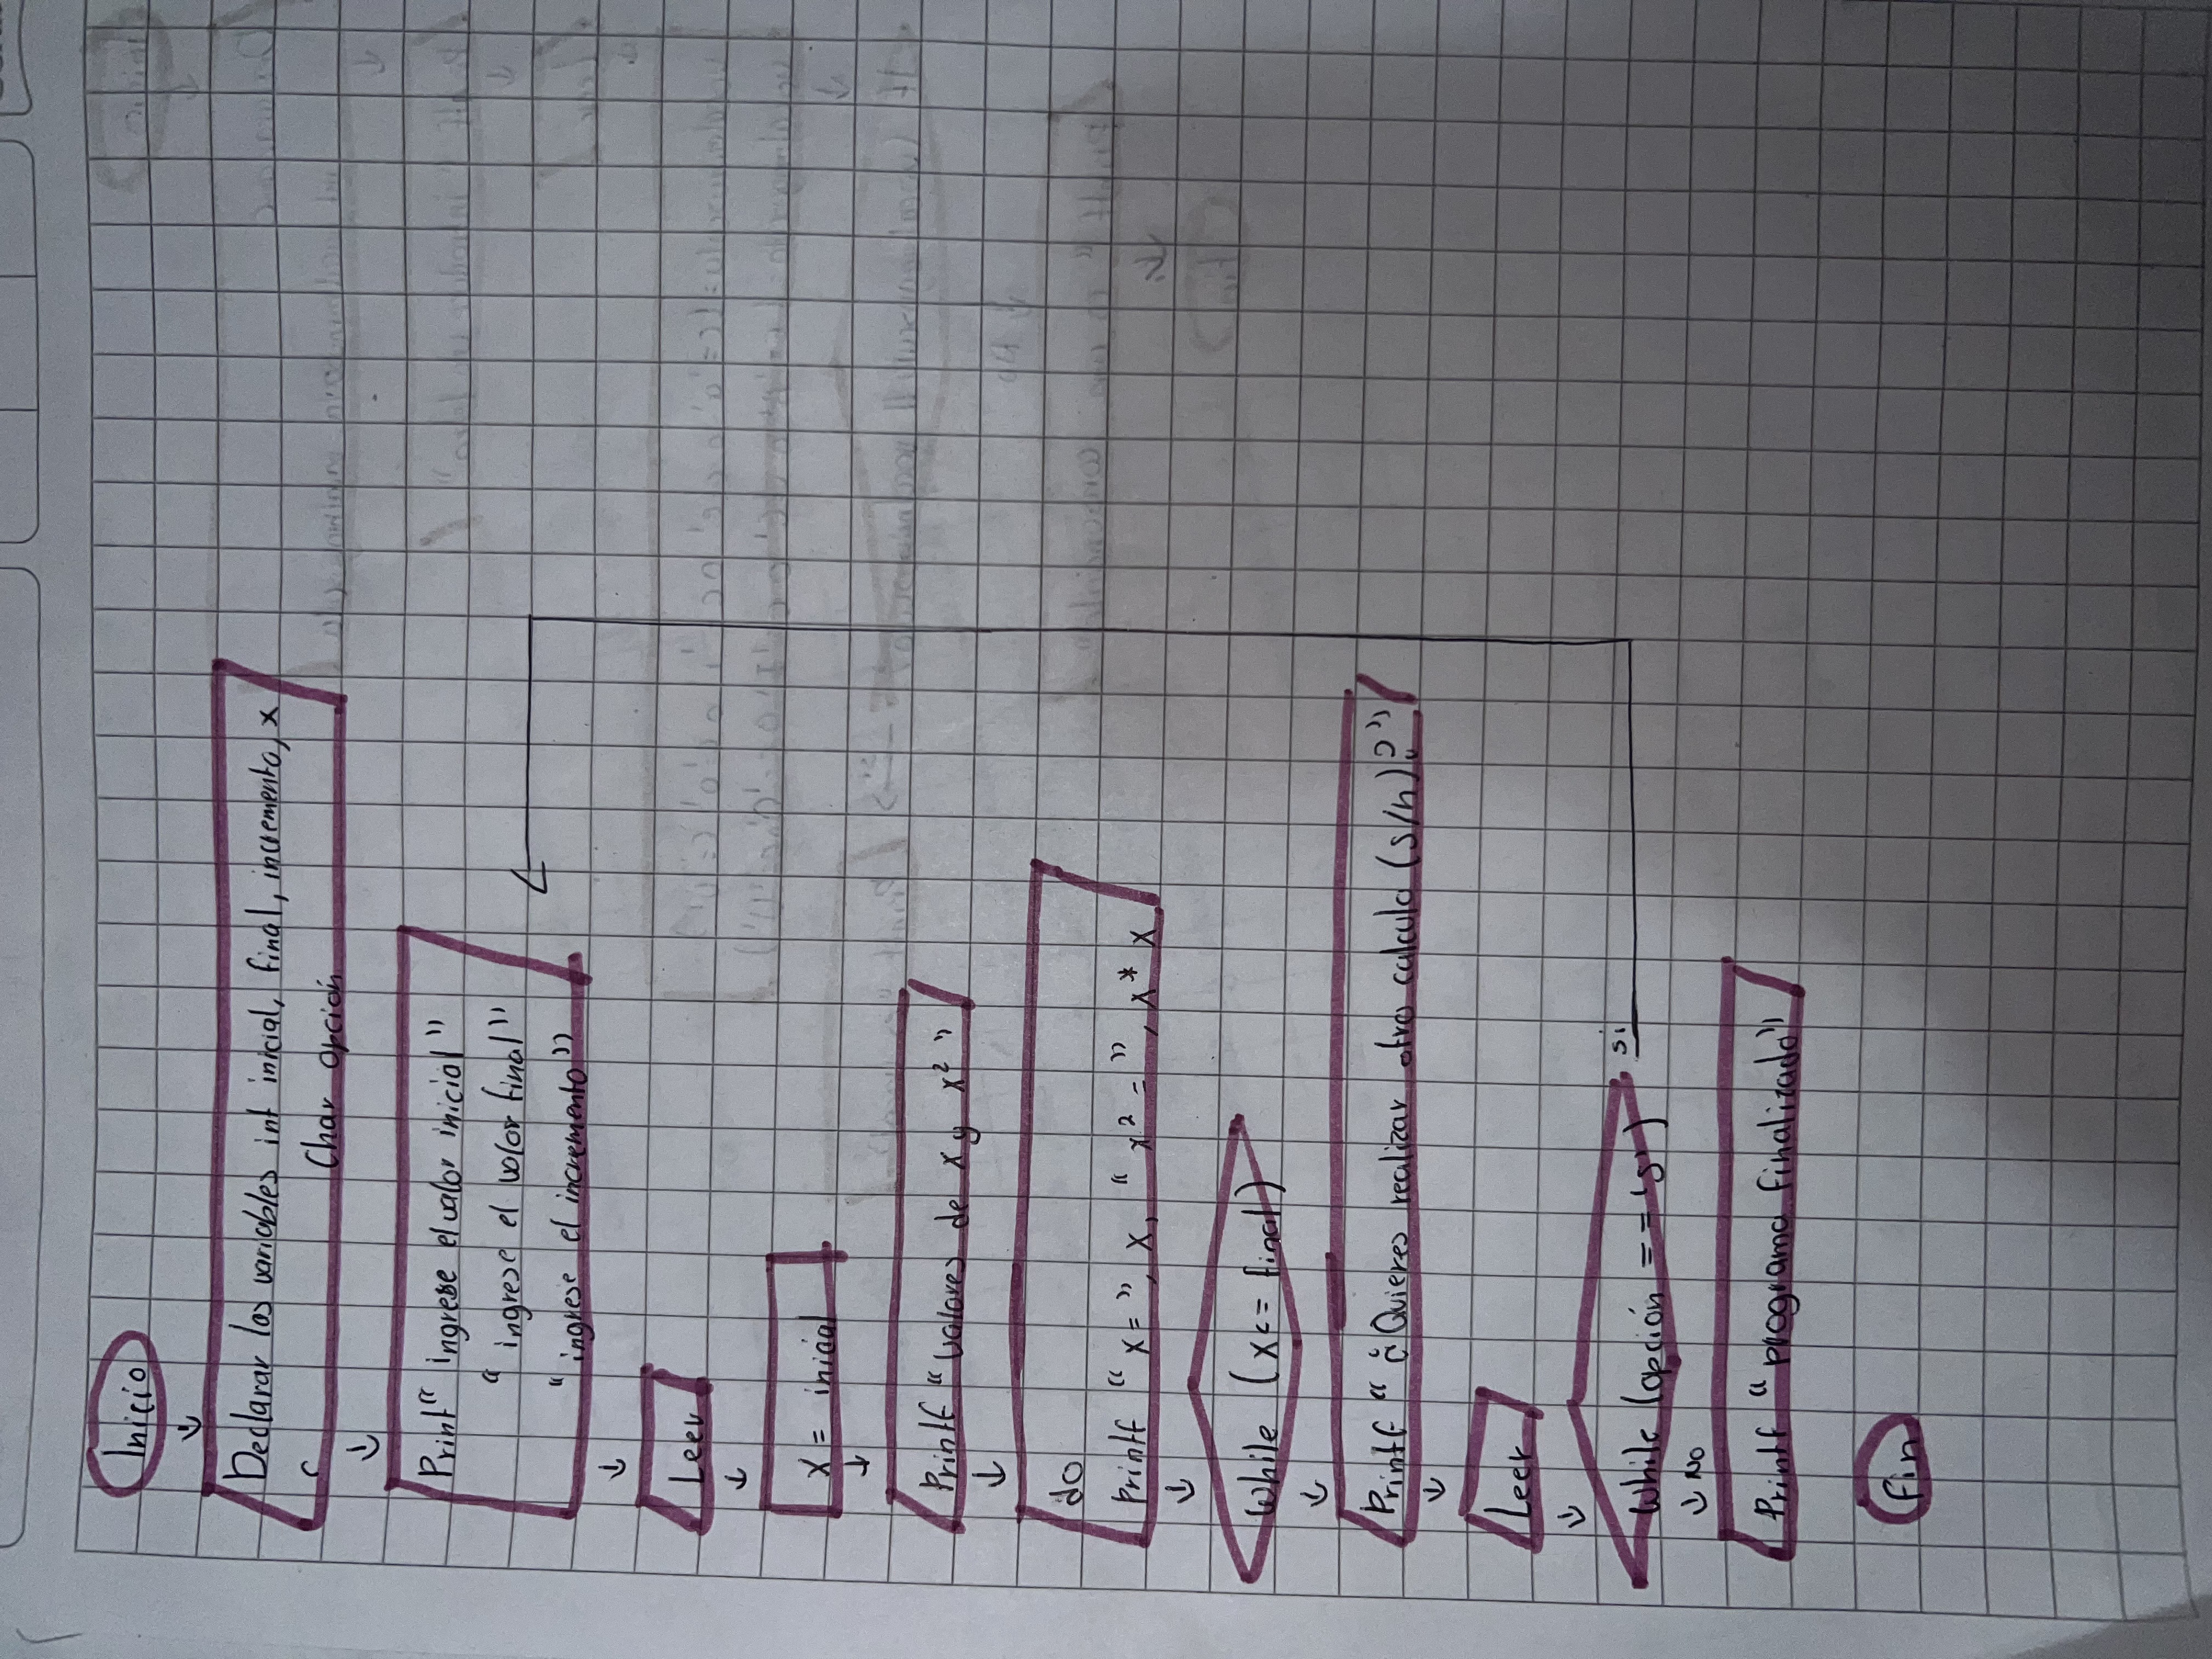 Inicio
Declarar las variables int inicial, final, incremento, x
Char opción
Print “ ingrese el valor inicial ”
“ ingrese el valor final ”
“ ingrese el incremento ”
Leer
x = inicial
Printf “ valores de x y x² ”
do
Printf “ x = ”, x, “ x² = ”, x * x
While (x <= final)
Printf “ ¿Quieres realizar otro calculo (s/n)? ”
Leer
While (opción == 's')
si
No
Printf “ programa finalizado ”
fin